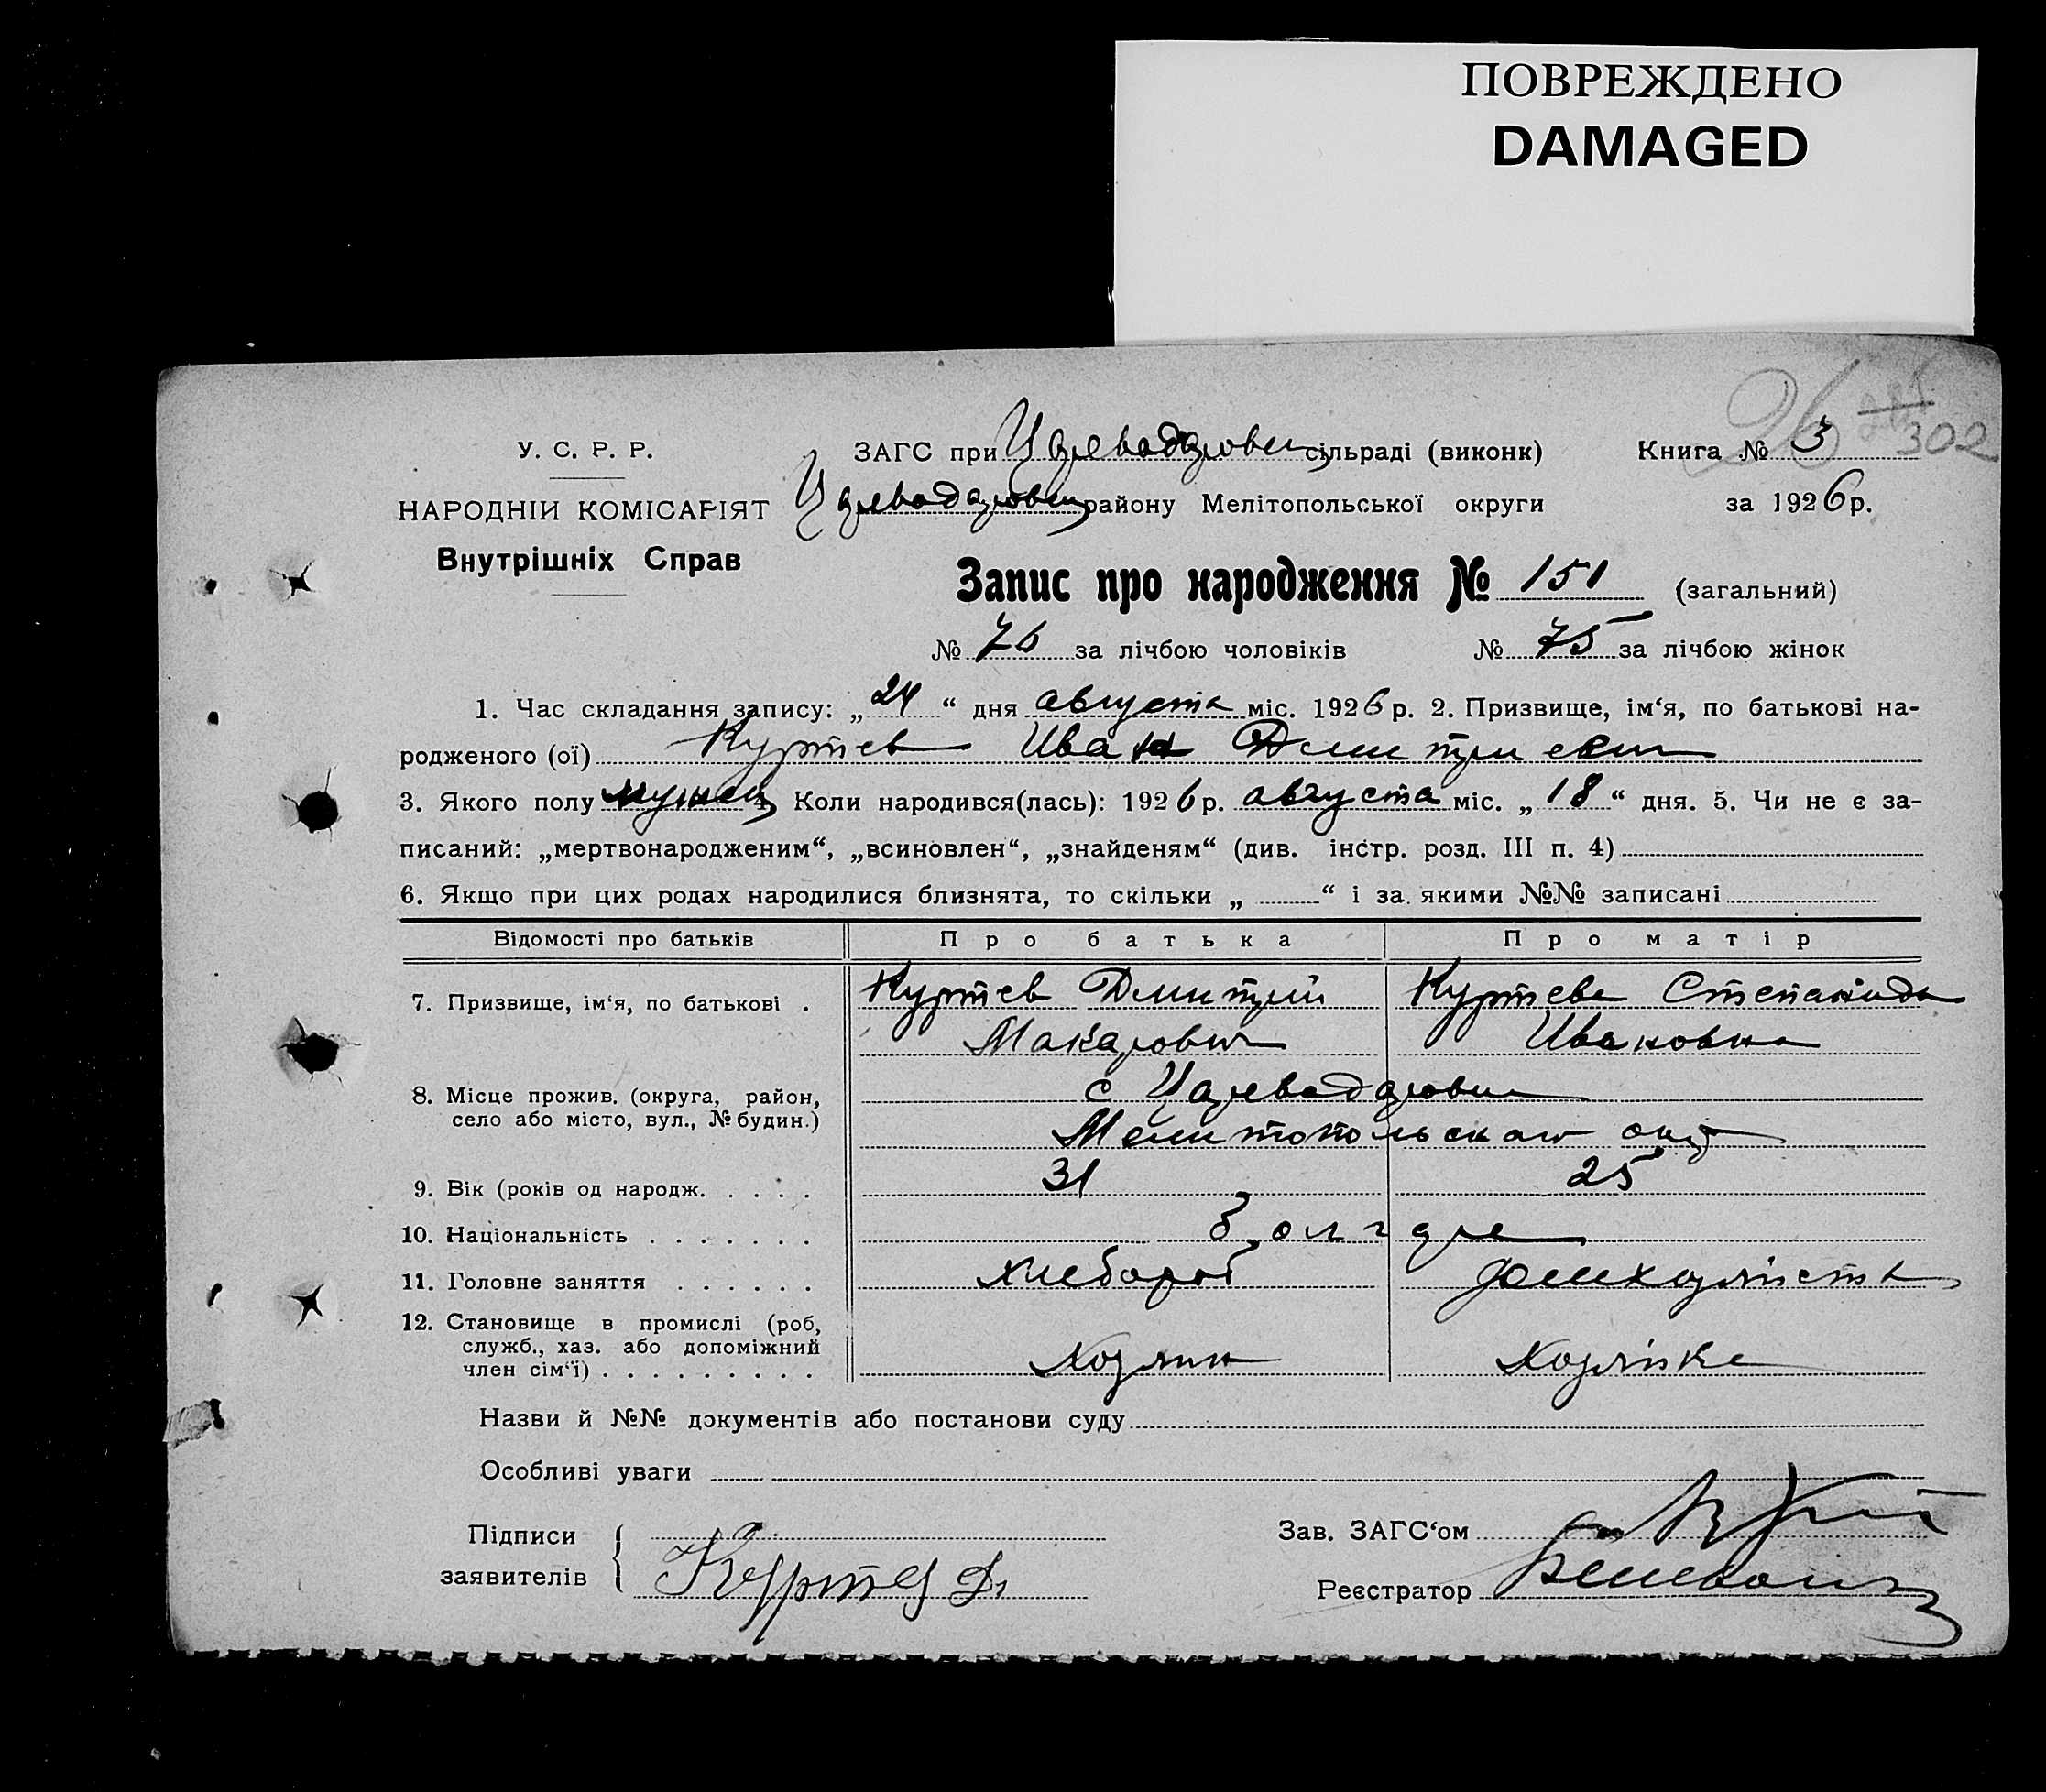 ПОВРЕЖДЕНО
DAMAGED
302
У. С. Р. Р.
НАРОДНІЙ КОМІСАРІЯТ
Внутрішніх Справ
ЗАГС при Царевадаровск сільраді (виконк)
Книга № 3
Царевадаровск району Мелітопольської округи
за 1926 р.
Запис про народження № 151 (загальний)
№ 76 за лічбою чоловіків № 75 за лічбою жінок
1. Час складання запису: „24“ дня августа міс. 1926 р. 2. Призвище, ім‘я, по батькові на-
родженого (ої) Куртев Иван Дмитриевич
3. Якого полу мужск 4. Коли народився(лась): 1926 р. августа міс. „18“ дня. 5. Чи не є за-
писаний: „мертвонародженим“, „всиновлен“, „знайденям“ (див. інстр. розд. III п. 4)
6. Якщо при цих родах народилися близнята, то скільки „ “ і за якими №№ записані
Відомості про батьків Про батька Про матір
7. Призвище, ім‘я, по батькові . Куртев Дмитрий Куртева Степанида
Макарович Ивановна
8. Місце прожив. (округа, район,
село або місто, вул., № будин.)
с Царевадаровка
Мелитопольскаго окр
9. Вік (років од народж. . . . . 31 25
10. Національність . . . . . . . болгаре
11. Головне заняття . . . . . . хлебороб домхозяйства
12. Становище в промислі (роб,
служб., хаз. або допоміжний
член сім‘ї) . . . . . . . . . Хозяин Хозяйка
Назви й №№ документів або постанови суду
Особливі уваги
Підписи
заявителів
Куртев Д
Зав. ЗАГС‘ом
Реєстратор